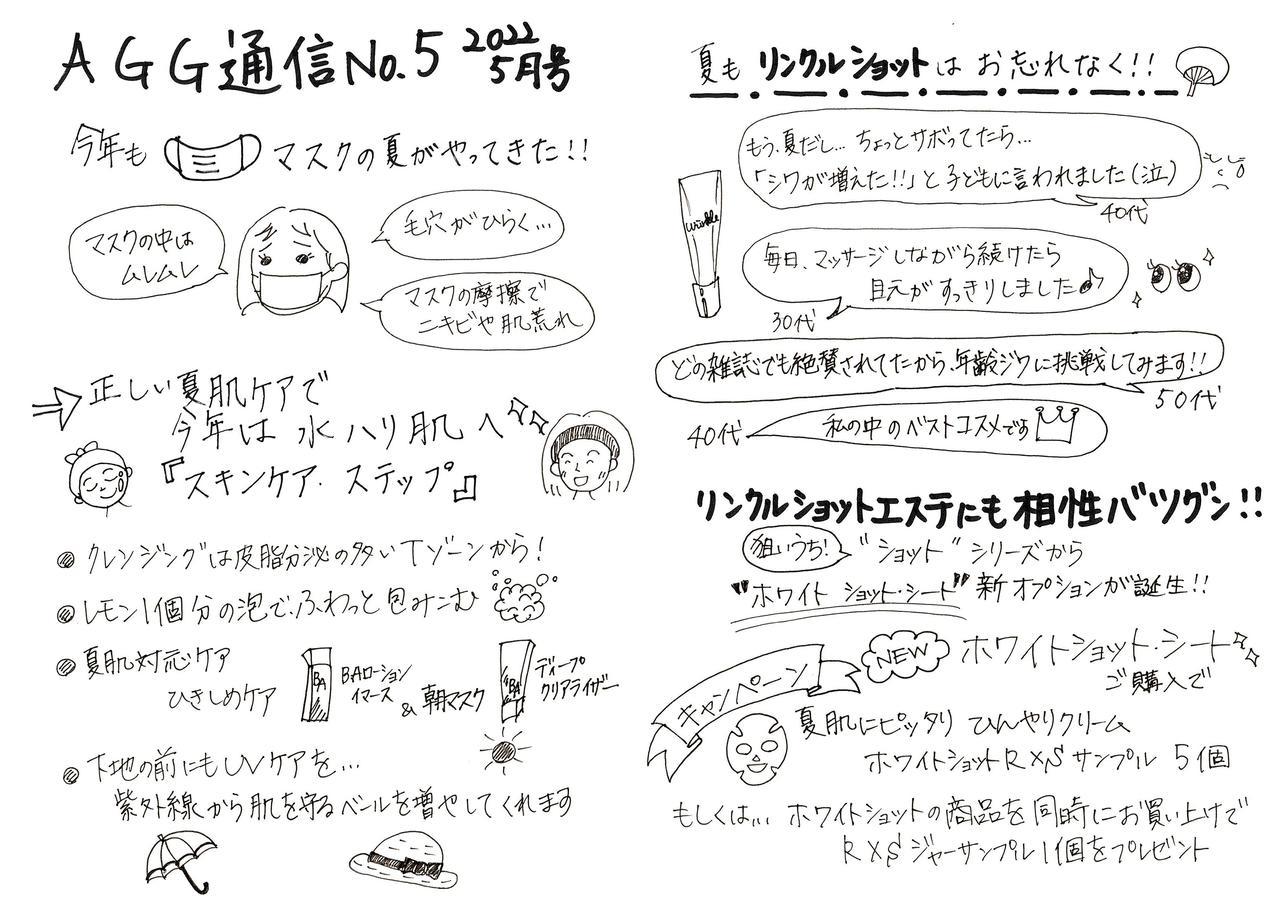 AGG通信No.5 2022 5月号
今年も マスクの夏がやってきた!!
マスクの中は
ムレムレ
毛穴がひらく...
マスクの摩擦で
ニキビや肌荒れ
正しい夏肌ケアで
今年は水ハリ肌へ
『スキンケア・ステップ』
クレンジングは皮脂分泌の多いTゾーンから!
レモン1個分の泡で、ふわっと包みこむ
夏肌対応ケア
ひきしめケア
BA
BAローション
イマース
& 朝マスク
BA
ディープ
クリアライザー
下地の前にもUVケアを...
紫外線から肌を守るベールを増やしてくれます
夏も リンクルショットは お忘れなく!!
もう、夏だし... ちょっとサボってたら...
「シワが増えた!!」と子どもに言われました(泣)
40代
wrinkle
毎日、マッサージしながら続けたら
目元が すっきりしました♪
30代
どの雑誌でも絶賛されてたから、年齢ジワに挑戦してみます!!
50代
40代
私の中のベストコスメです
リンクルショットエステにも相性バツグン!!
狙いうち!
"ショット" シリーズから
"ホワイト ショット・シート" 新オプションが誕生!!
キャンペーン
NEW
ホワイトショット・シート
ご購入で
夏肌にピッタリ ひんやりクリーム
ホワイトショットRXS サンプル 5個
もしくは... ホワイトショットの商品を同時にお買い上げで
RXS ジャーサンプル1個をプレゼント